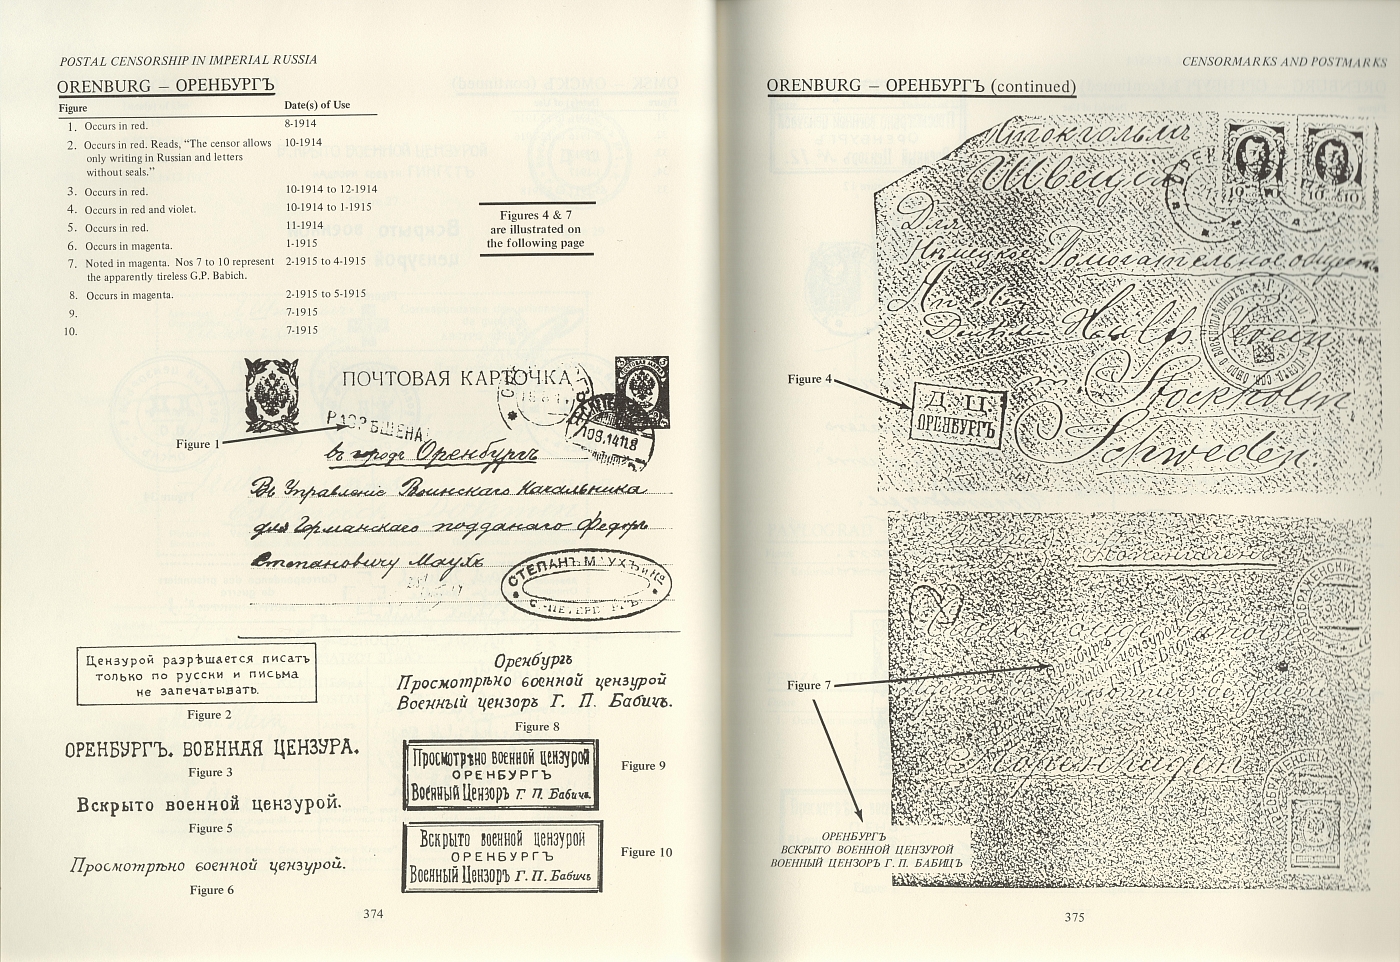 POSTAL CENSORSHIP IN IMPERIAL RUSSIA
ORENBURG – ОРЕНБУРГЪ
Figure Date(s) of Use
1. Occurs in red. 8-1914
2. Occurs in red. Reads, “The censor allows 10-1914
only writing in Russian and letters
without seals.”
3. Occurs in red. 10-1914 to 12-1914
4. Occurs in red and violet. 10-1914 to 1-1915
5. Occurs in red. 11-1914
6. Occurs in magenta. 1-1915
7. Noted in magenta. Nos 7 to 10 represent 2-1915 to 4-1915
the apparently tireless G.P. Babich.
8. Occurs in magenta. 2-1915 to 5-1915
9. 7-1915
10. 7-1915
Figures 4 & 7
are illustrated on
the following page
ПОЧТОВАЯ КАРТОЧКА
РАЗРѢШЕНА
Figure 1
въ городъ Оренбургъ
Въ Управленіе Воинскаго Начальника
для Германскаго подданаго Федоръ
Степановичу Маухъ
СТЕПАНЪ МАУХЪ и Ко
Цензурой разрѣшается писать
только по русски и письма
не запечатывать.
Figure 2
ОРЕНБУРГЪ. ВОЕННАЯ ЦЕНЗУРА.
Figure 3
Вскрыто военной цензурой.
Figure 5
Просмотрѣно военной цензурой.
Figure 6
Оренбургъ
Просмотрѣно военной цензурой
Военный цензоръ Г. П. Бабичъ.
Figure 8
Просмотрѣно военной цензурой
ОРЕНБУРГЪ
Военный Цензоръ Г. П. Бабичъ
Figure 9
Вскрыто военной цензурой
ОРЕНБУРГЪ
Военный Цензоръ Г. П. Бабичъ
Figure 10
374
CENSORMARKS AND POSTMARKS
ORENBURG – ОРЕНБУРГЪ (continued)
Стокгольмъ
Швеция
Для
Нѣмецкое Помогательное общество
An den
Deutschen Hülfs Verein
Figure 4
in Stockholm
Д. Ц.
ОРЕНБУРГЪ
Schweden.
Копенгагенъ
Figure 7
Agence de prisonniers de guerre
Kopenhagen
ОРЕНБУРГЪ
ВСКРЫТО ВОЕННОЙ ЦЕНЗУРОЙ
ВОЕННЫЙ ЦЕНЗОРЪ Г. П. БАБИЦЪ
375